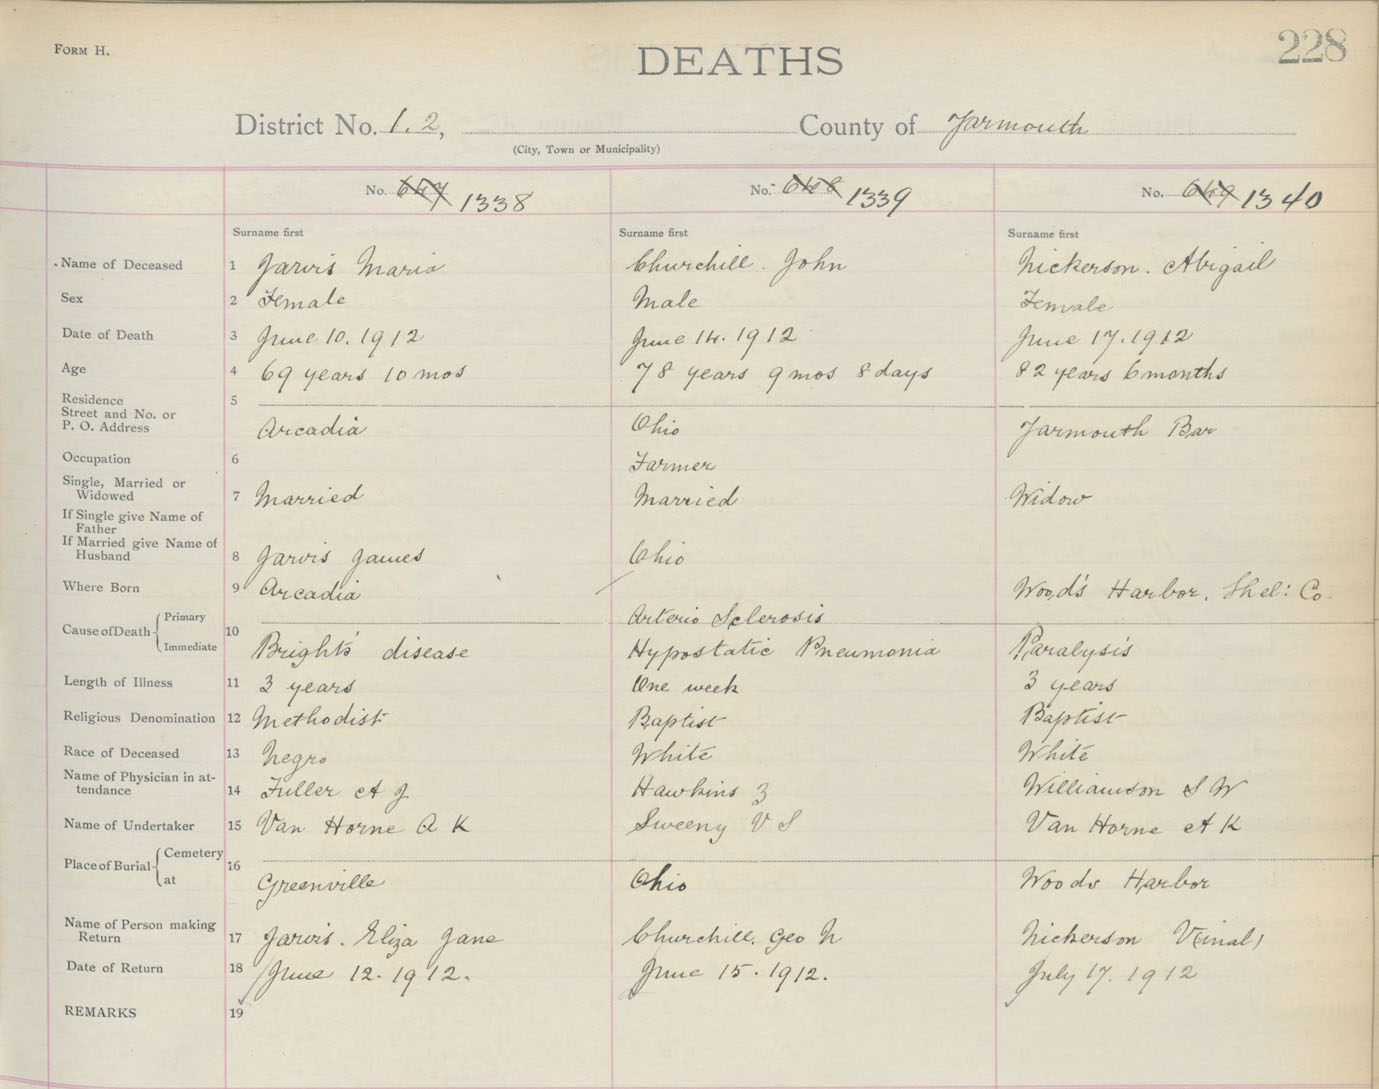 FORM H.
DEATHS
228
District No. 1.2, County of Yarmouth
(City, Town or Municipality)
No. 647 1338 No. 648 1339 No. 649 1340
Surname first Surname first Surname first
Name of Deceased 1 Jarvis Maria Churchill. John Nickerson. Abigail
Sex 2 Female Male Female
Date of Death 3 June 10. 1912 June 14. 1912 June 17. 1912
Age 4 69 years 10 mos 78 years 9 mos 8 days 82 years 6 months
Residence 5
Street and No. or
P. O. Address Arcadia Ohio Yarmouth Bar
Occupation 6 Farmer
Single, Married or
Widowed 7 Married Married Widow
If Single give Name of
Father
If Married give Name of
Husband 8 Jarvis James Ohio
Where Born 9 Arcadia Wood's Harbor. Shel: Co.
Cause of Death Primary 10 Arterio Sclerosis
Immediate Bright's disease Hypostatic Pneumonia Paralysis
Length of Illness 11 3 years One week 3 years
Religious Denomination 12 Methodist Baptist Baptist
Race of Deceased 13 Negro White White
Name of Physician in at-
tendance 14 Fuller A J Hawkins Z Williamson S W
Name of Undertaker 15 Van Horne A K Sweeny V S Van Horne A K
Place of Burial Cemetery 16
at Greenville Ohio Woods Harbor
Name of Person making
Return 17 Jarvis. Eliza Jane Churchill. Geo N Nickerson V(inal)
Date of Return 18 June 12. 1912. June 15. 1912. July 17. 1912
REMARKS 19